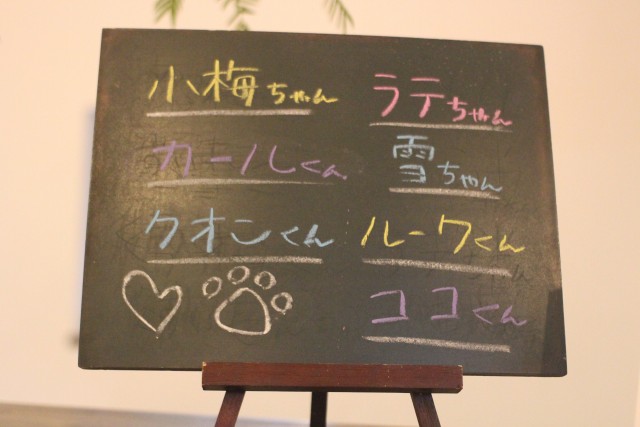 小梅ちゃん
カールくん
クオンくん
ラテちゃん
雪ちゃん
ルークくん
ココくん